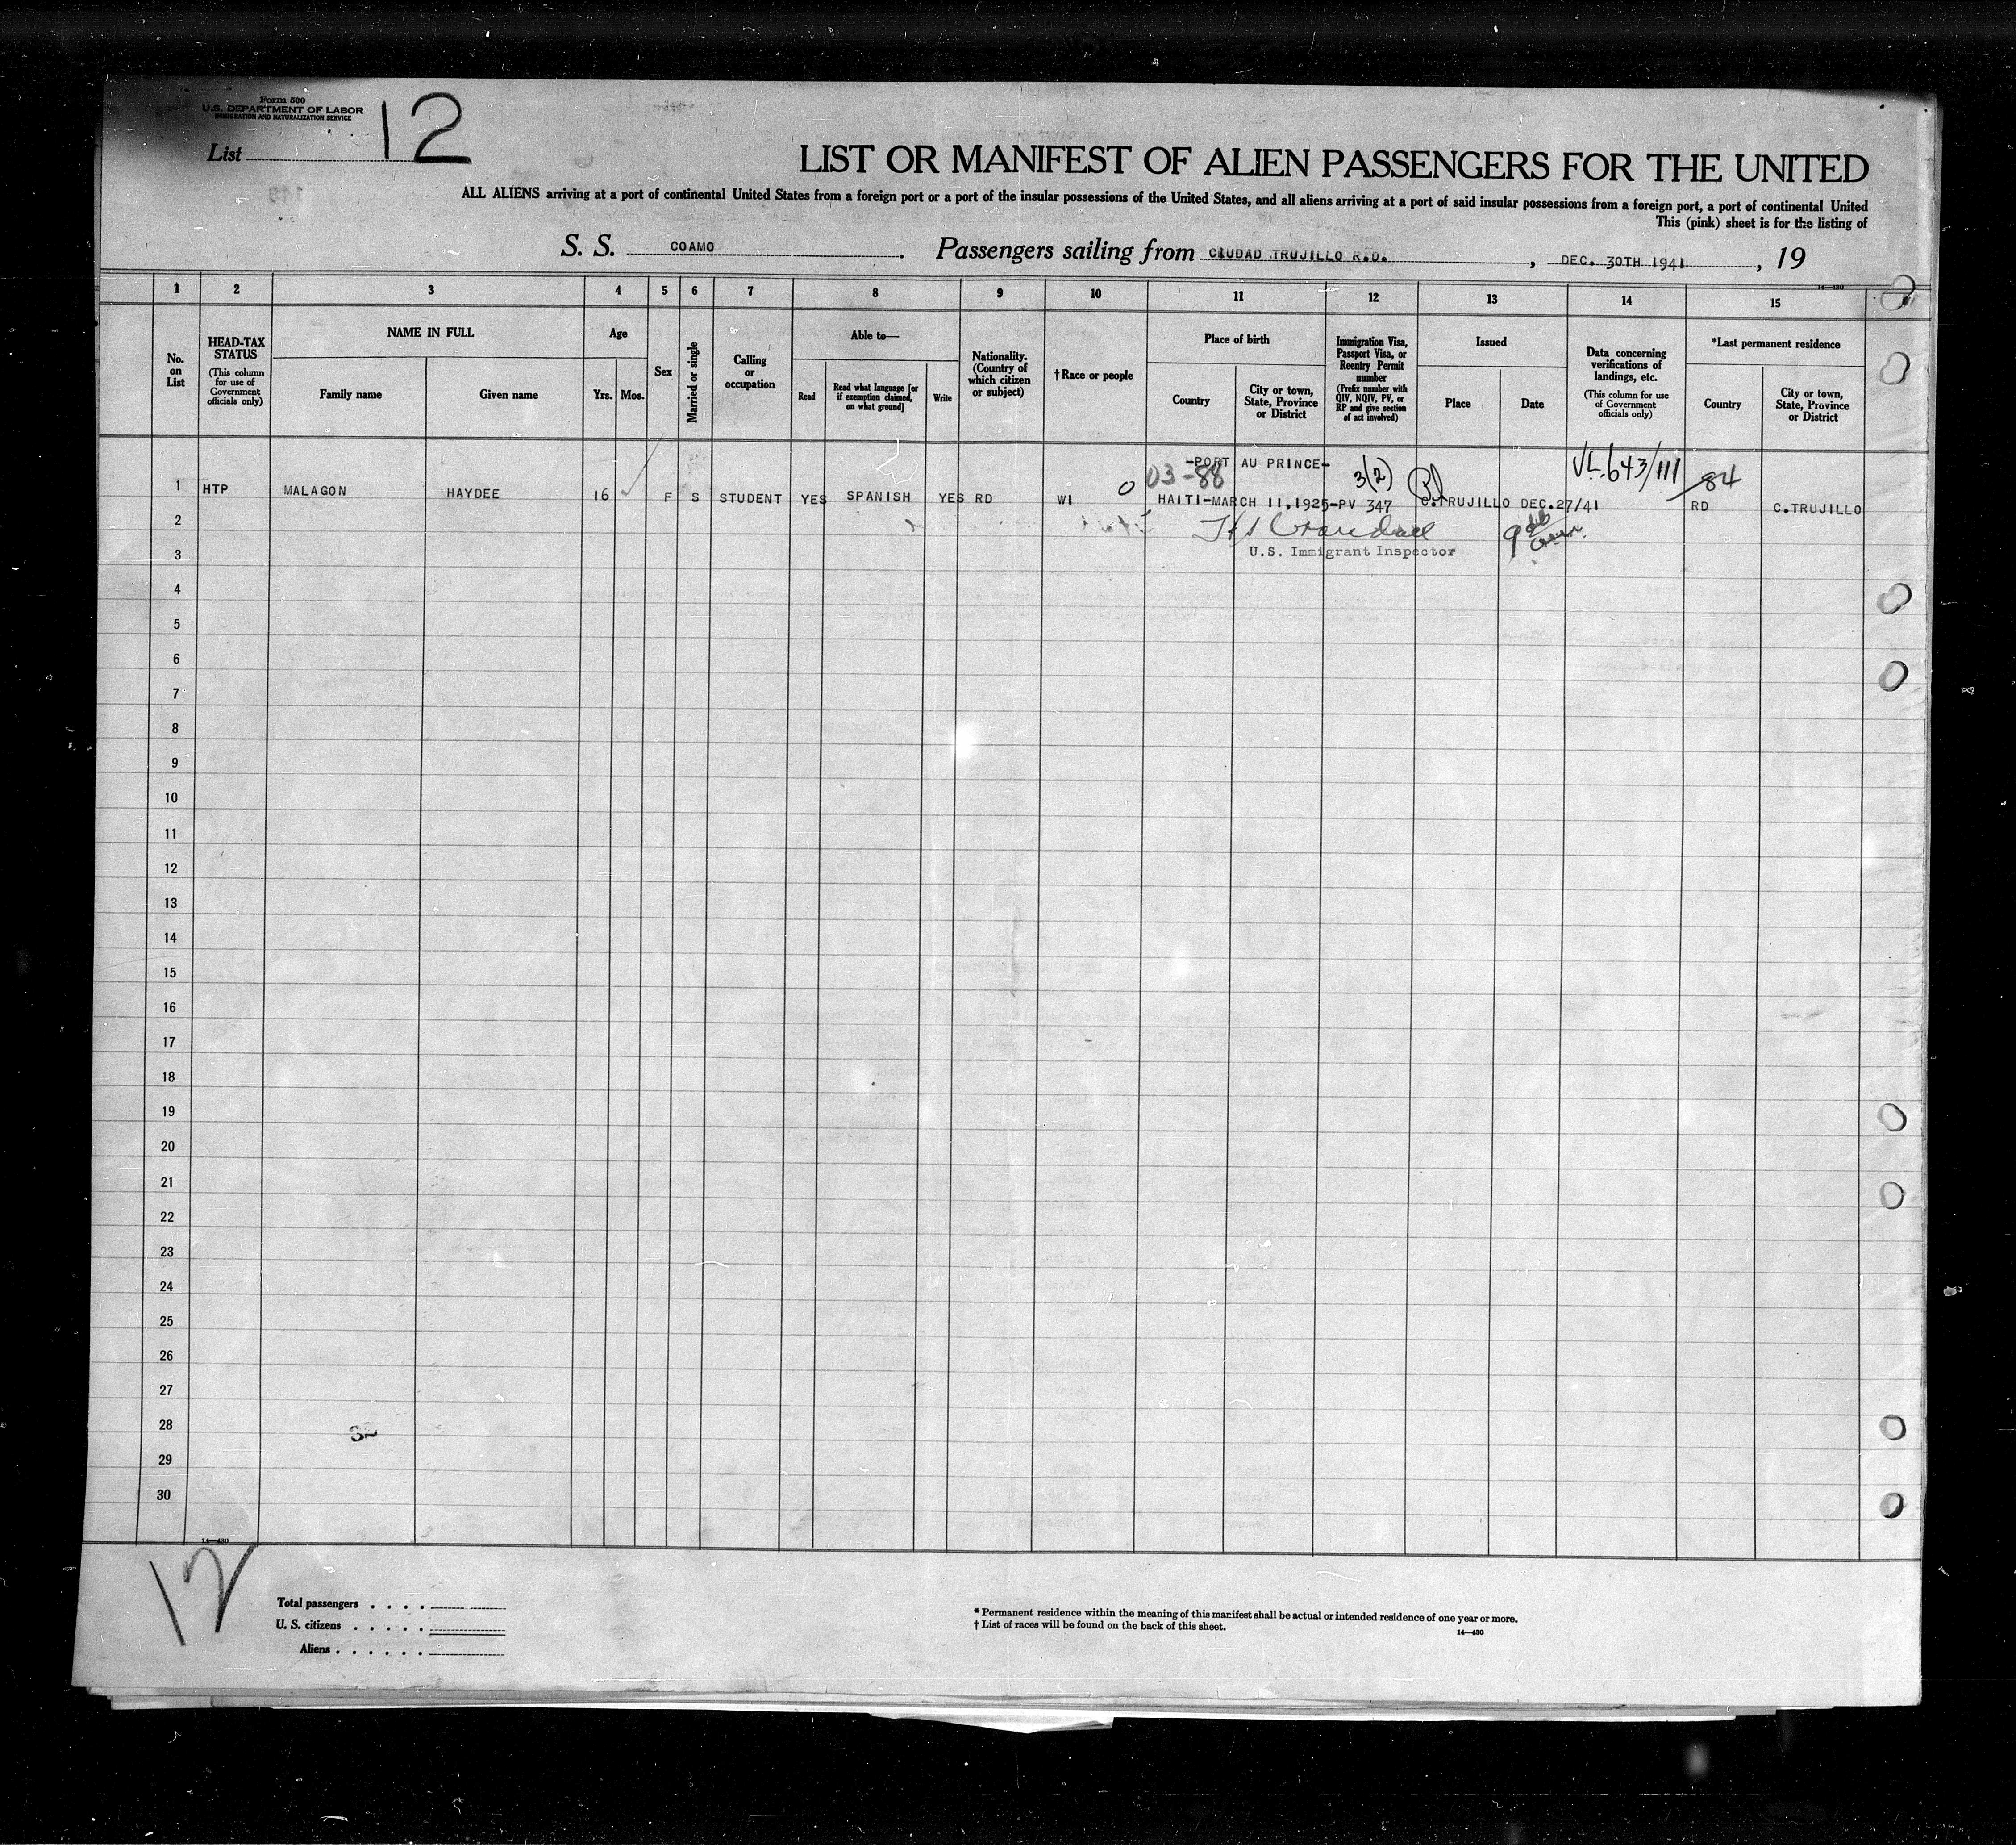 Form 500
U.S. DEPARTMENT OF LABOR
IMMIGRATION AND NATURALIZATION SERVICE
List 12
LIST OR MANIFEST OF ALIEN PASSENGERS FOR THE UNITED
ALL ALIENS arriving at a port of continental United States from a foreign port or a port of the insular possessions of the United States, and all aliens arriving at a port of said insular possessions from a foreign port, a port of continental United
This (pink) sheet is for the listing of
S. S. COAMO. Passengers sailing from CIUDAD TRUJILLO R.D., DEC. 30TH 1941, 19
14—430
1 2 3 4 5 6 7 8 9 10 11 12 13 14 15
No. on List
HEAD-TAX STATUS
(This column for use of Government officials only)
NAME IN FULL
Family name
Given name
Age
Yrs. Mos.
Sex
Married or single
Calling or occupation
Able to—
Read
Read what language [or if exemption claimed, on what ground]
Write
Nationality. (Country of which citizen or subject)
† Race or people
Place of birth
Country
City or town, State, Province or District
Immigration Visa, Passport Visa, or Reentry Permit number
(Prefix number with QIV, NQIV, PV, or RP and give section of act involved)
Issued
Place
Date
Data concerning verifications of landings, etc.
(This column for use of Government officials only)
*Last permanent residence
Country
City or town, State, Province or District
-PORT AU PRINCE-
03-88 3(2) VL.643/111 84
1 HTP MALAGON HAYDEE 16 F S STUDENT YES SPANISH YES RD WI 0 HAITI-MARCH 11,1925-PV 347 C.TRUJILLO DEC.27/41 RD C.TRUJILLO
2
U.S. Immigrant Inspector
3
4
5
6
7
8
9
10
11
12
13
14
15
16
17
18
19
20
21
22
23
24
25
26
27
28
29
30
14—430
12
Total passengers . . . .
U. S. citizens . . . . .
Aliens . . . . . .
* Permanent residence within the meaning of this manifest shall be actual or intended residence of one year or more.
† List of races will be found on the back of this sheet.
14—430